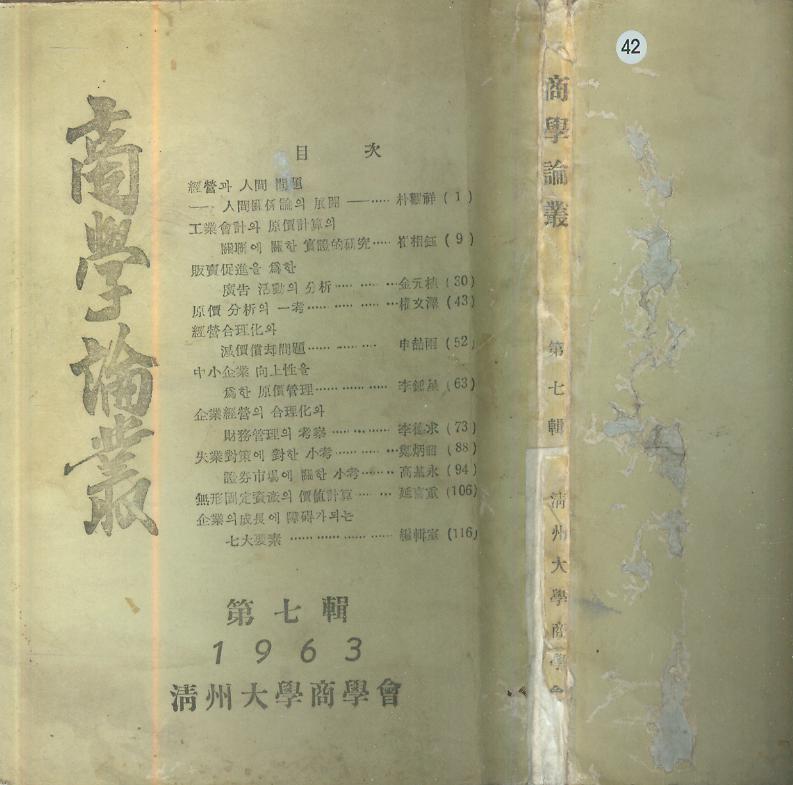 商學論叢
目 次
經營과 人間 問題
—— 人間關係論의 展開 ——…… 朴 祥 ( 1 )
工業會計와 原價計算의
關聯에 關한 實證的硏究…… 崔相鈺 ( 9 )
販賣促進을 爲한
廣告 活動의 分析…………金元 (30)
原價 分析의 一考…………權文澤 (43)
經營合理化와
減價償却問題………… 申 雨 (52)
中小企業 向上性을
爲한 原價管理………… 李 (63)
企業經營의 合理化와
財務管理의 考察………… 李 求 (73)
失業對策에 對한 小考………… 炳 (88)
證券市場에 關한 小考……高基永 (94)
無形固定資產의 價値計算…… 延 重 (106)
企業의成長에 障碍가되는
七大要素 ………………… 編輯室 (116)
第七輯
1963
淸州大學商學會
商學論叢
第七輯
淸州大學商學會
42